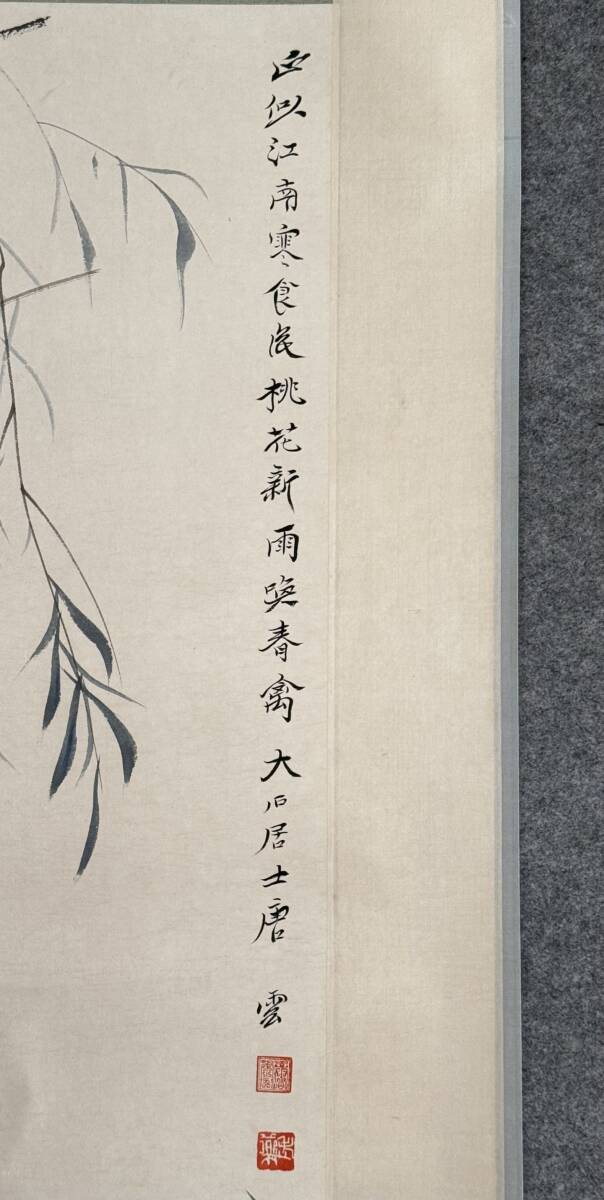 正似江南寒食后桃花新雨唤春禽 大石居士唐 雲